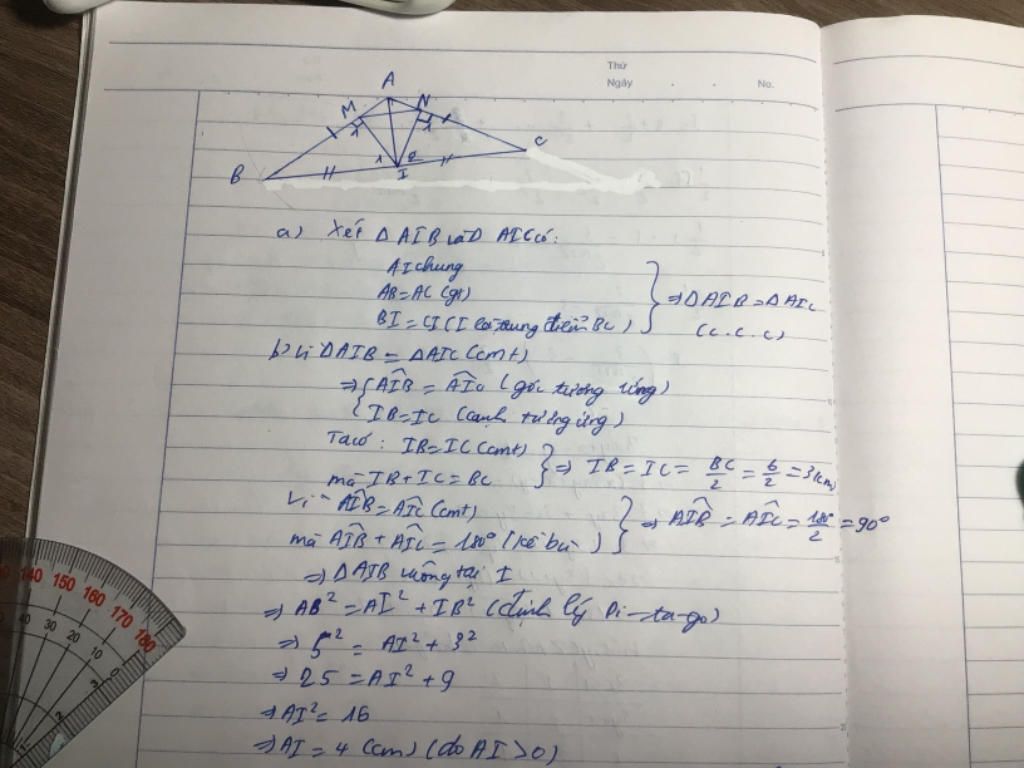 Thứ
Ngày . . No.
A
M N
B I C
1 2
a) Xét Δ AIB và Δ AIC có:
AI chung
AB = AC (gt)
BI = CI (I là trung điểm BC)
⇒ Δ AIB = Δ AIC
(c.c.c)
b) Vì ΔAIB = ΔAIC (cmt)
⇒ { AIB̂ = AIĈ (góc tương ứng)
IB = IC (cạnh tương ứng)
Ta có: IB = IC (cmt)
mà IB + IC = BC
⇒ IB = IC = BC/2 = 6/2 = 3 (cm)
Vì AIB̂ = AIĈ (cmt)
mà AIB̂ + AIĈ = 180° (kề bù)
⇒ AIB̂ = AIĈ = 180°/2 = 90°
⇒ Δ AIB vuông tại I
⇒ AB² = AI² + IB² (định lý Pi-ta-go)
⇒ 5² = AI² + 3²
⇒ 25 = AI² + 9
⇒ AI² = 16
⇒ AI = 4 (cm) (do AI > 0)
140 150 160 170 180
40 30 20 10 0